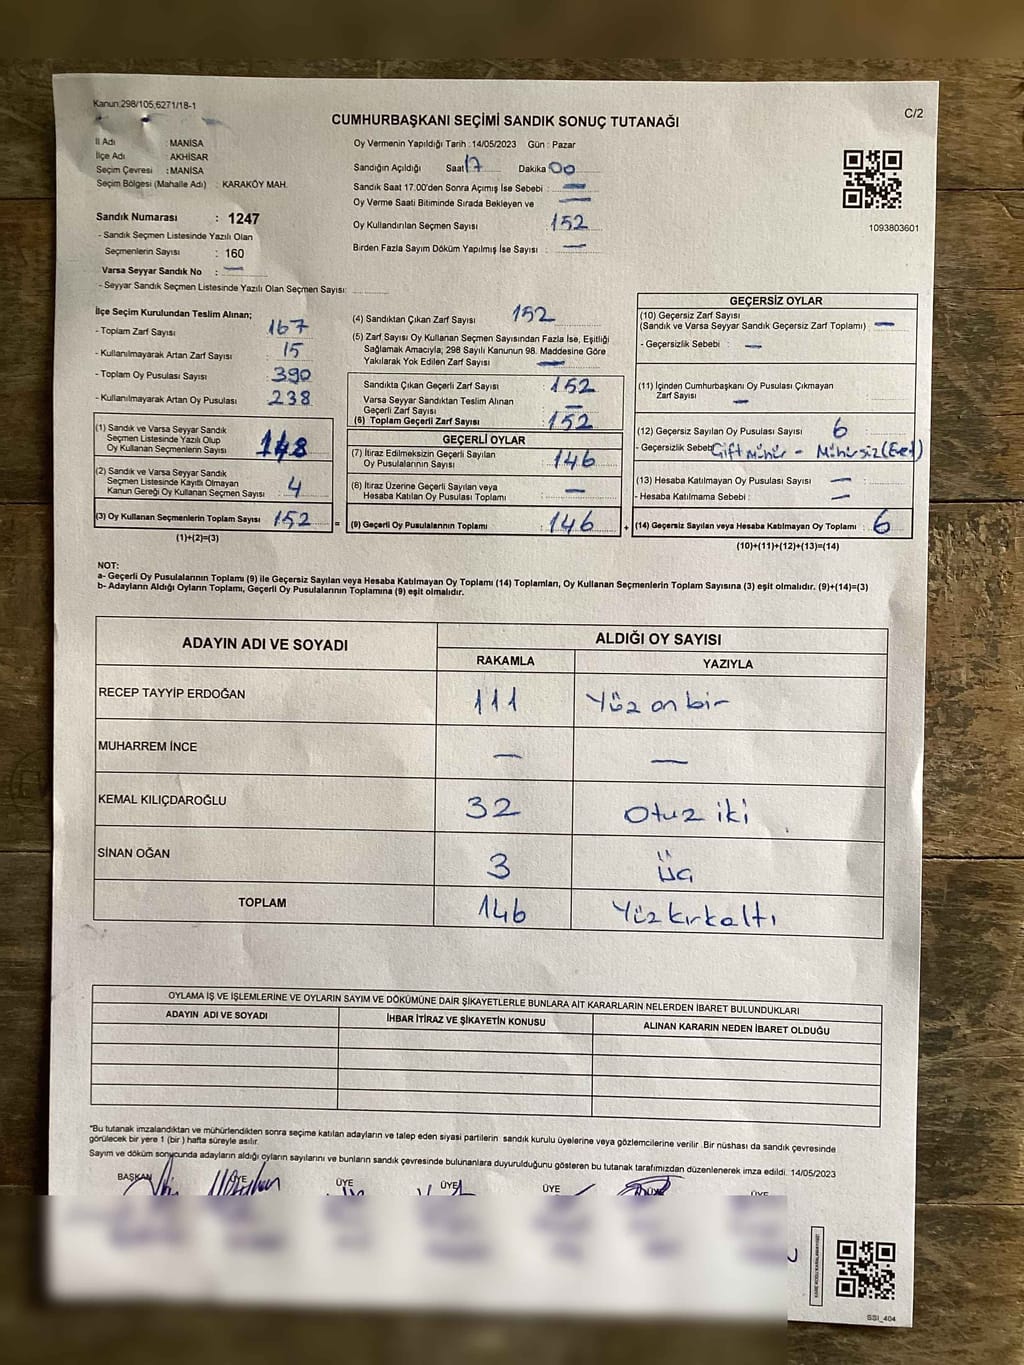 Kanun:298/105,6271/18-1
C/2
CUMHURBAŞKANI SEÇİMİ SANDIK SONUÇ TUTANAĞI
İl Adı : MANİSA
İlçe Adı : AKHİSAR
Seçim Çevresi : MANİSA
Seçim Bölgesi (Mahalle Adı) : KARAKÖY MAH.
Sandık Numarası : 1247
- Sandık Seçmen Listesinde Yazılı Olan
Seçmenlerin Sayısı : 160
Varsa Seyyar Sandık No : —
- Seyyar Sandık Seçmen Listesinde Yazılı Olan Seçmen Sayısı:
Oy Vermenin Yapıldığı Tarih : 14/05/2023 Gün : Pazar
Sandığın Açıldığı Saat 17 Dakika 00
Sandık Saat 17.00'den Sonra Açımış İse Sebebi : —
Oy Verme Saati Bitiminde Sırada Bekleyen ve —
Oy Kullandırılan Seçmen Sayısı 152
Birden Fazla Sayım Döküm Yapılmış İse Sayısı : —
1093803601
İlçe Seçim Kurulundan Teslim Alınan;
- Toplam Zarf Sayısı 167
- Kullanılmayarak Artan Zarf Sayısı : 15
- Toplam Oy Pusulası Sayısı : 390
- Kullanılmayarak Artan Oy Pusulası : 238
(1) Sandık ve Varsa Seyyar Sandık
Seçmen Listesinde Yazılı Olup
Oy Kullanan Seçmenlerin Sayısı 148
(2) Sandık ve Varsa Seyyar Sandık
Seçmen Listesinde Kayıtlı Olmayan
Kanun Gereği Oy Kullanan Seçmen Sayısı : 4
(3) Oy Kullanan Seçmenlerin Toplam Sayısı : 152 =
(1)+(2)=(3)
(4) Sandıktan Çıkan Zarf Sayısı : 152
(5) Zarf Sayısı Oy Kullanan Seçmen Sayısından Fazla İse, Eşitliği
Sağlamak Amacıyla; 298 Sayılı Kanunun 98. Maddesine Göre
Yakılarak Yok Edilen Zarf Sayısı : —
Sandıkta Çıkan Geçerli Zarf Sayısı : 152
Varsa Seyyar Sandıktan Teslim Alınan
Geçerli Zarf Sayısı : —
(6) Toplam Geçerli Zarf Sayısı : 152
GEÇERLİ OYLAR
(7) İtiraz Edilmeksizin Geçerli Sayılan
Oy Pusulalarının Sayısı : 146
(8) İtiraz Üzerine Geçerli Sayılan veya
Hesaba Katılan Oy Pusulası Toplamı : —
(9) Geçerli Oy Pusulalarının Toplamı : 146 +
GEÇERSİZ OYLAR
(10) Geçersiz Zarf Sayısı
(Sandık ve Varsa Seyyar Sandık Geçersiz Zarf Toplamı) : —
- Geçersizlik Sebebi : —
(11) İçinden Cumhurbaşkanı Oy Pusulası Çıkmayan
Zarf Sayısı : —
(12) Geçersiz Sayılan Oy Pusulası Sayısı : 6
- Geçersizlik Sebebi Çift Mühür - Mühürsiz (Evet)
(13) Hesaba Katılmayan Oy Pusulası Sayısı : —
- Hesaba Katılmama Sebebi : —
(14) Geçersiz Sayılan veya Hesaba Katılmayan Oy Toplamı : 6
(10)+(11)+(12)+(13)=(14)
NOT:
a- Geçerli Oy Pusulalarının Toplamı (9) ile Geçersiz Sayılan veya Hesaba Katılmayan Oy Toplamı (14) Toplamları, Oy Kullanan Seçmenlerin Toplam Sayısına (3) eşit olmalıdır. (9)+(14)=(3)
b- Adayların Aldığı Oyların Toplamı, Geçerli Oy Pusulalarının Toplamına (9) eşit olmalıdır.
ADAYIN ADI VE SOYADI ALDIĞI OY SAYISI
RAKAMLA YAZIYLA
RECEP TAYYİP ERDOĞAN 111 Yüz on bir
MUHARREM İNCE — —
KEMAL KILIÇDAROĞLU 32 Otuz iki
SİNAN OĞAN 3 Üç
TOPLAM 146 Yüz kırk altı
OYLAMA İŞ VE İŞLEMLERİNE VE OYLARIN SAYIM VE DÖKÜMÜNE DAİR ŞİKAYETLERLE BUNLARA AİT KARARLARIN NELERDEN İBARET BULUNDUKLARI
ADAYIN ADI VE SOYADI İHBAR İTİRAZ VE ŞİKAYETİN KONUSU ALINAN KARARIN NEDEN İBARET OLDUĞU
*Bu tutanak imzalandıktan ve mühürlendikten sonra seçime katılan adayların ve talep eden siyasi partilerin sandık kurulu üyelerine veya gözlemcilerine verilir .Bir nüshası da sandık çevresinde
görülecek bir yere 1 (bir ) hafta süreyle asılır.
Sayım ve döküm sonucunda adayların aldığı oyların sayılarını ve bunların sandık çevresinde bulunanlara duyurulduğunu gösteren bu tutanak tarafımızdan düzenlenerek imza edildi. 14/05/2023
BAŞKAN ÜYE ÜYE ÜYE ÜYE ÜYE ÜYE
SSI_404